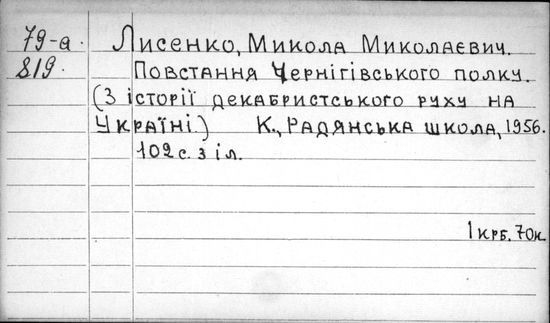 79-а. Лисенко, Микола Миколаєвич.
819. Повстання Чернігівського полку.
(З історії декабристського руху на
Україні.) К., Радянська школа, 1956.
102 с. з іл.
1 крб. 70 к.